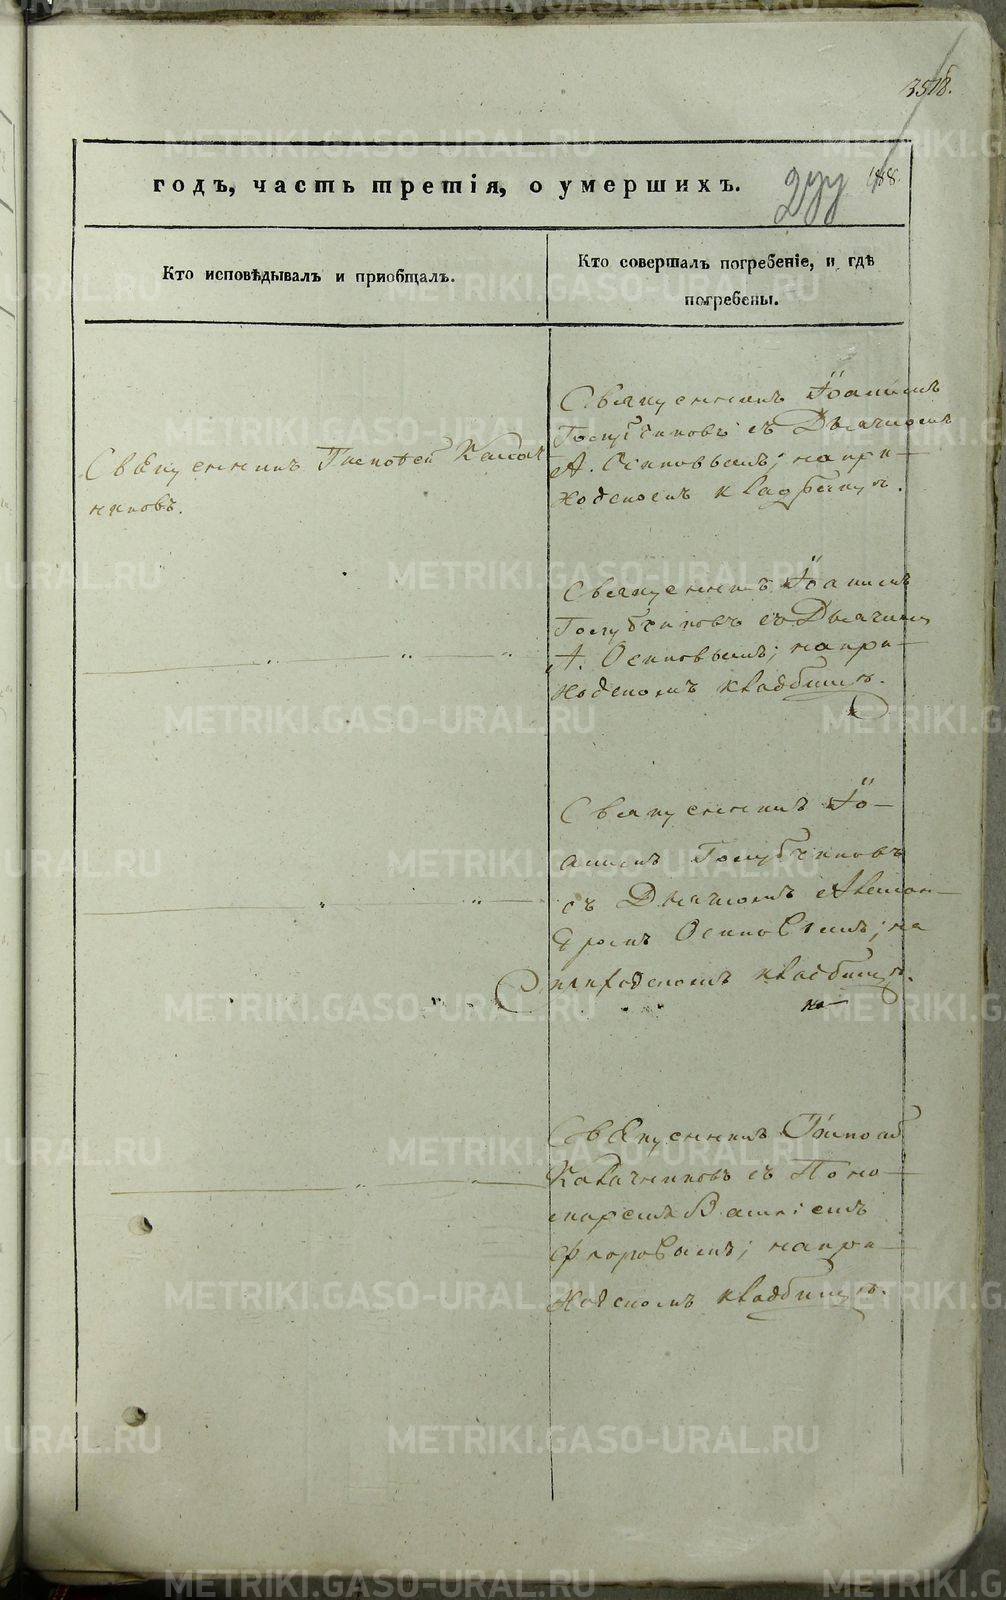 годъ, часть третія, о умершихъ.
Кто исповѣдывалъ и приобщалъ.
Кто совершалъ погребеніе, и гдѣ
погребены.
Священникъ
никовъ.
Священникъ Іоаннъ
Голубчиковъ съ Дьячкомъ
А. Осиповымъ; на при-
ходскомъ кладбищѣ.
Священникъ Іоаннъ
Голубчиковъ съ Дьячкомъ
А. Осиповымъ; на при-
ходскомъ кладбищѣ.
Священникъ Іо-
аннъ Голубчиковъ
съ Дьячкомъ Алексан-
дромъ Осиповымъ; на
приходскомъ кладбищѣ.
Священникъ
Калачниковъ съ Поно-
маремъ
Флоровымъ; на при-
ходскомъ кладбищѣ.
METRIKI.GASO-URAL.RU